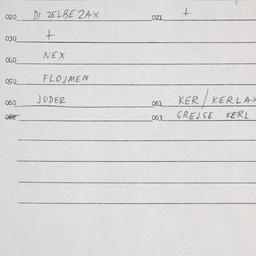 020 DI ZELBE ZAX 021 +
030 +
040 NEX
050 FLOJMEN
060 JODER 061 KER / KERLAX
062 063 GREJSE KERL